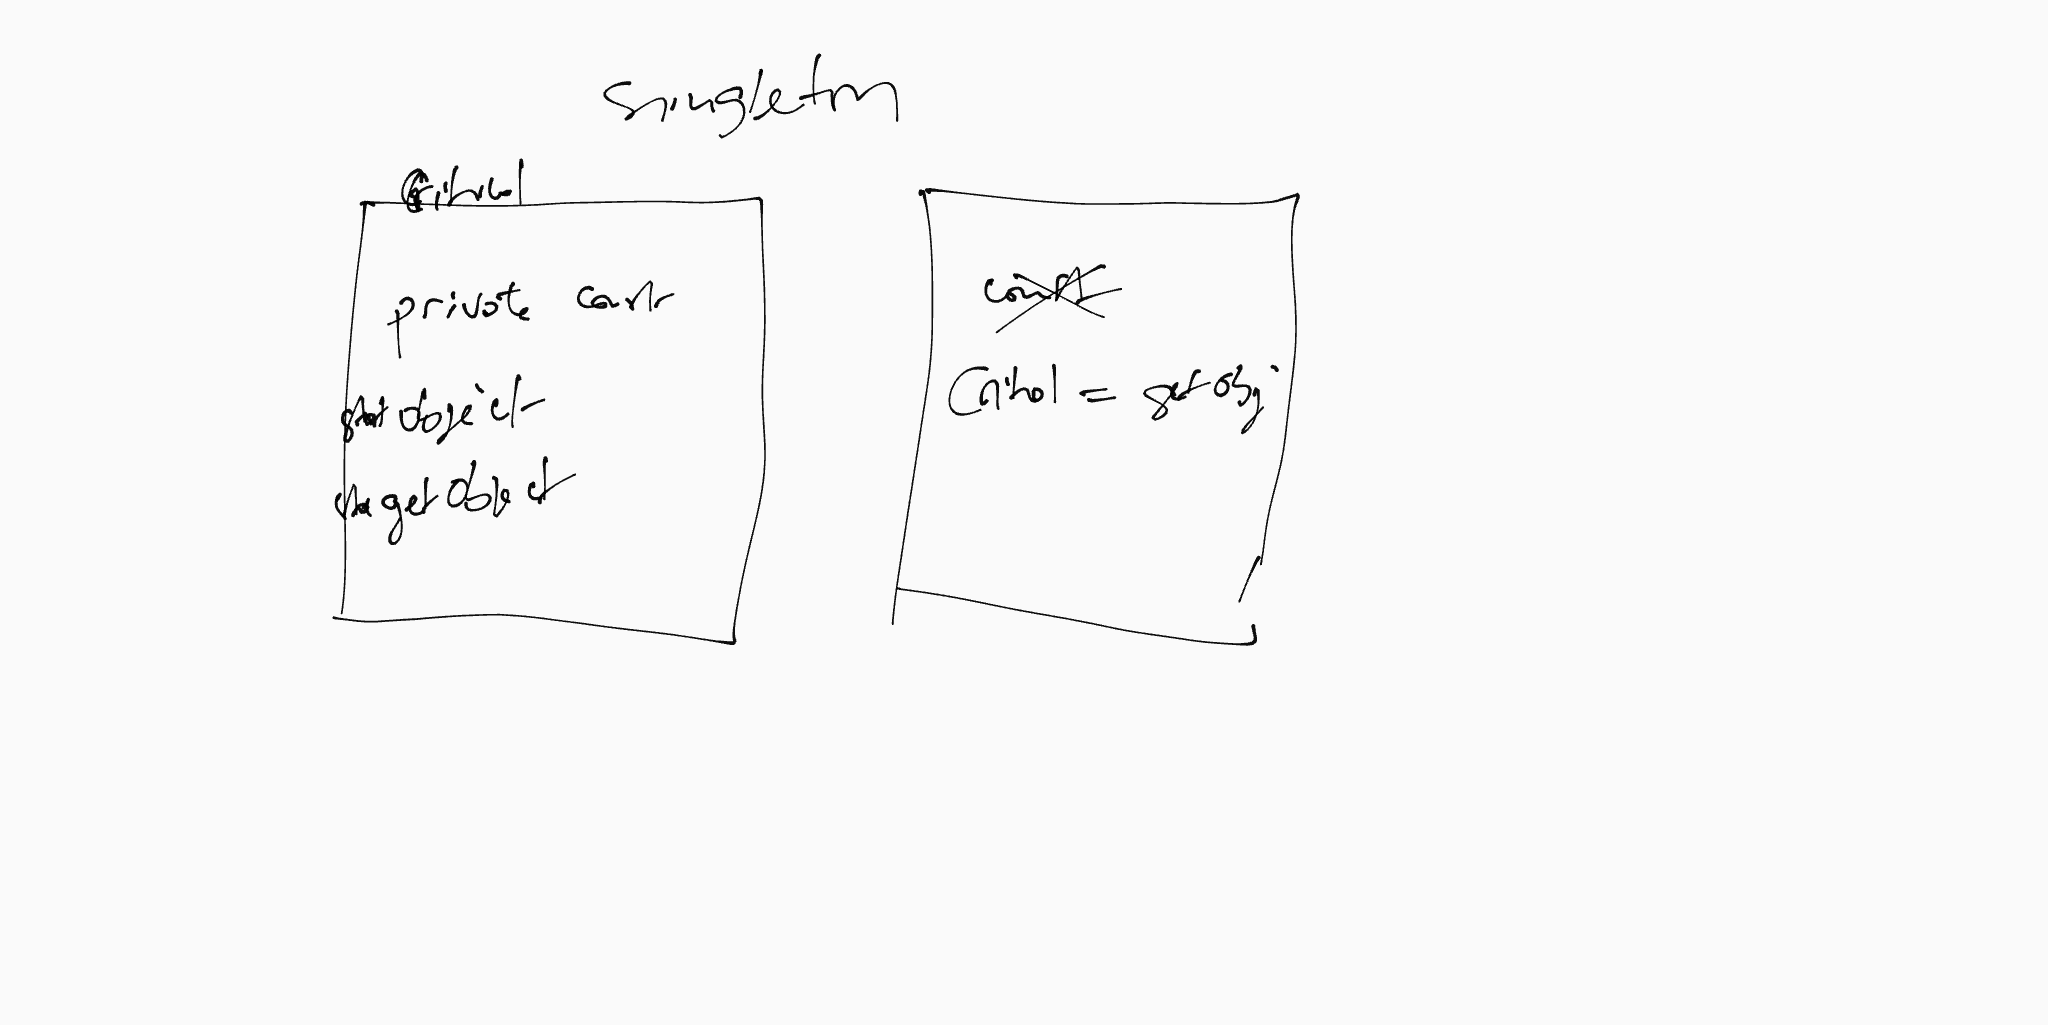 Singleton
Critical
private constr
stat object
stat getObject
const
Critical = getobj